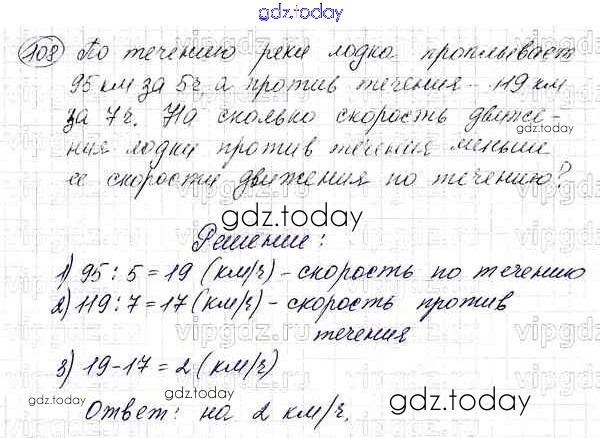 gdz.today
108 По течению реки лодка проплывает
95 км за 5ч, а против течения - 119 км
за 7ч. На сколько скорость движе-
ния лодки против течения меньше
ее скорости движения по течению?
gdz.today
Решение:
1) 95 : 5 = 19 (км/ч) - скорость по течению
2) 119 : 7 = 17 (км/ч) - скорость против
течения
3) 19 - 17 = 2 (км/ч)
Ответ: на 2 км/ч.